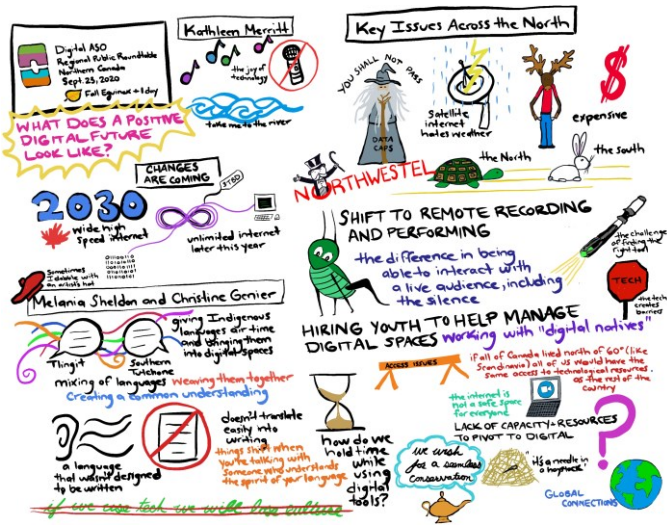 Digital ASO
Regional Public Roundtable
Northern Canada
Sept. 25, 2020
Fall Equinox + 1 day
WHAT DOES A POSITIVE
DIGITAL FUTURE
LOOK LIKE?
Kathleen Merritt
the joy of
technology
take me to the river
CHANGES
ARE COMING
2030
wide high
speed internet
$TBD
unlimited internet
later this year
Sometimes
I dabble with
an artist's hat
Melania Sheldon and Christine Genier
giving Indigenous
languages air time
and bringing them
into digital spaces
Tlingit
Southern
Tutchone
mixing of languages weaving them together
Creating a common understanding
a language
that wasn't designed
to be written
doesn't translate
easily into
writing
things shift when
you're talking with
someone who understands
the spirit of your language
if we use tech we will lose culture
Key Issues Across the North
YOU SHALL NOT PASS
DATA
CAPS
Satellite
internet
hates weather
$
expensive
NORTHWESTEL
the North
the south
SHIFT TO REMOTE RECORDING
AND PERFORMING
the difference in being
able to interact with
a live audience, including
the silence
the challenge
of finding the
right tool
TECH
the tech
creates
barriers
HIRING YOUTH TO HELP MANAGE
DIGITAL SPACES working with "digital natives"
ACCESS ISSUES
if all of Canada lived north of 60° (like
Scandinavia) all of us would have the
same access to technological resources
as the rest of the
country
the internet is
not a safe space
for everyone
LACK OF CAPACITY + RESOURCES
TO PIVOT TO DIGITAL
how do we
hold time
while
using
digital
tools?
we wish
for a seamless
conservation
"it's a needle in
a haystack"
?
GLOBAL
CONNECTIONS